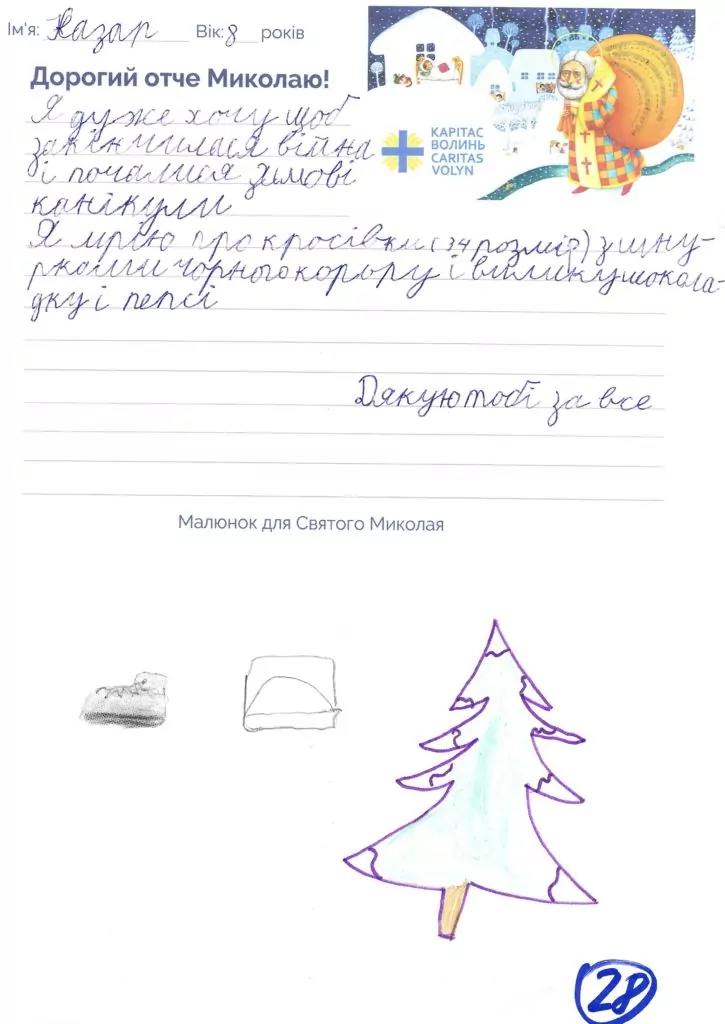 Ім'я: Назар Вік: 8 років
Дорогий отче Миколаю!
Я дуже хочу щоб
закінчилася війна
і почалися зимові
канікули
КАРІТАС
ВОЛИНЬ
CARITAS
VOLYN
Я мрію про кросівки (34 розмір) з шну-
рками чорного кольору і велику шокола-
дку і пепсі
Дякую тобі за все
Малюнок для Святого Миколая
28